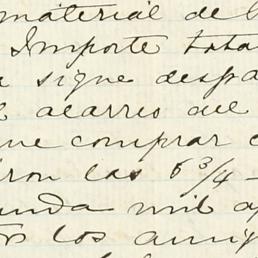 material de l
Importe tota
sigue despa
acarreo del
que comprar c
ron las 5 3/4 -
unda mil a
los amig